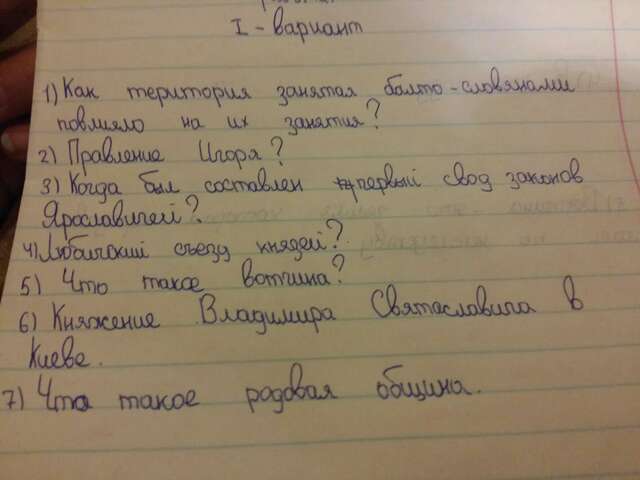 I - вариант
1) Как територия занятая балто-словянами
повлияло на их занятия?
2) Правление Игоря?
3) Когда был составлен первый свод законов
Ярославичей?
4) Любичский съезд князей?
5) Что такое вотчина?
6) Княжение Владимира Святаславича в
Киеве.
7) Что такое родовая община.